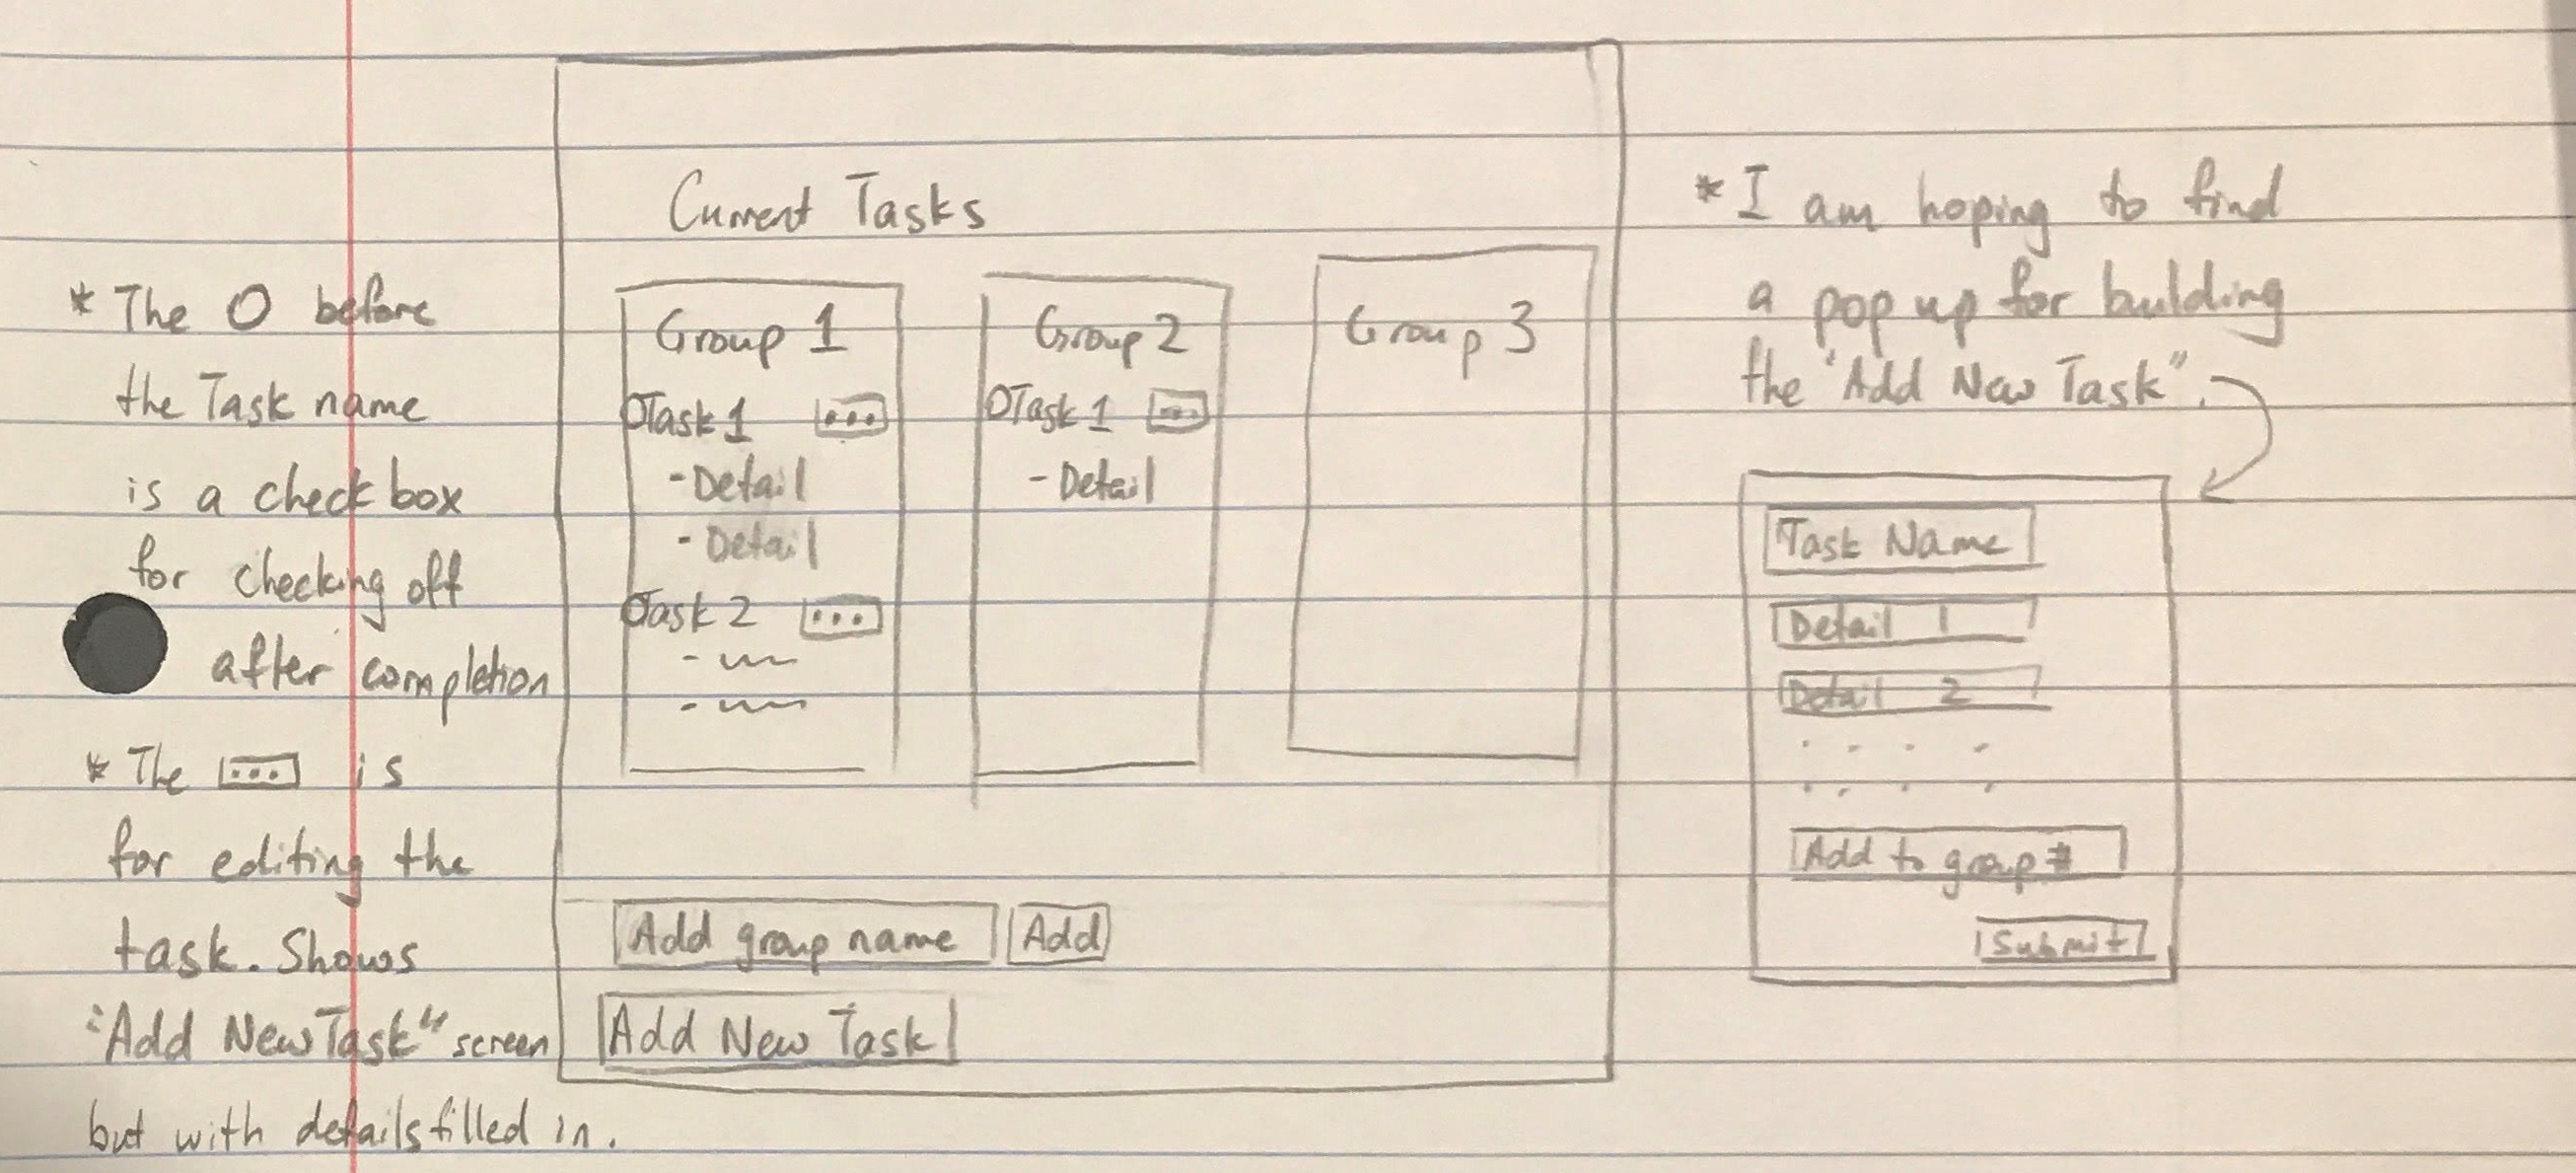 * The O before
the Task name
is a check box
for checking off
after completion
* The [...] is
for editing the
task. Shows
"Add New Task" screen
but with details filled in.
Current Tasks
Group 1
O Task 1 [...]
- Detail
- Detail
O Task 2 [...]
Group 2
O Task 1 [...]
- Detail
Group 3
Add group name Add
Add New Task
* I am hoping to find
a pop up for building
the "Add New Task".
Task Name
Detail 1
Detail 2
. . . .
. . . .
Add to group #
Submit